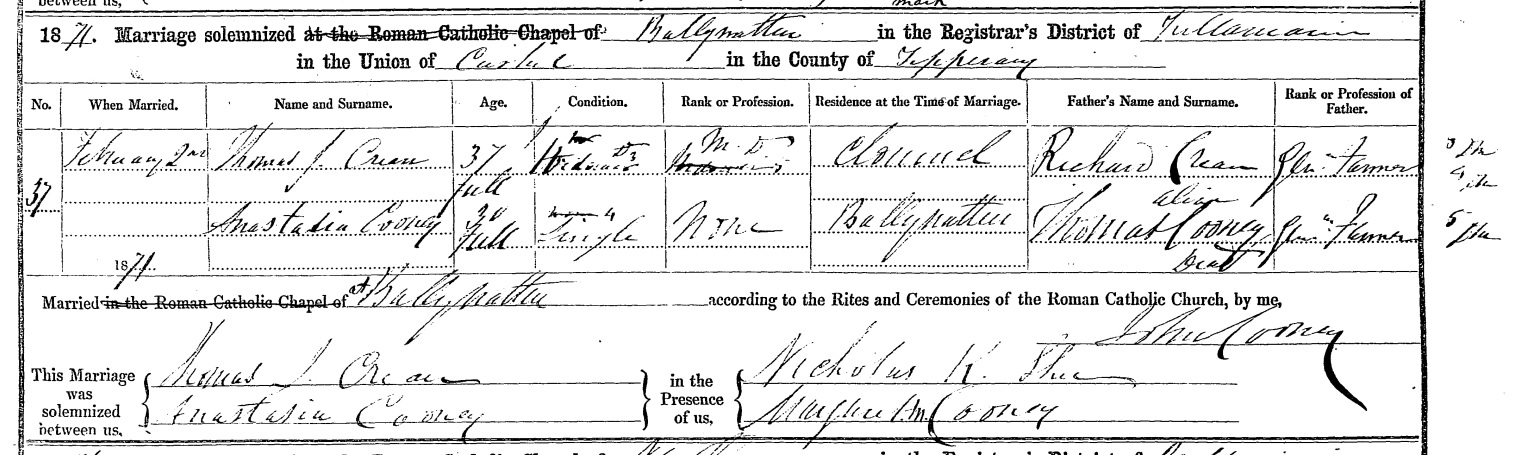 between us,
mark
1871. Marriage solemnized at the Roman Catholic Chapel of Ballypatten in the Registrar's District of Tullamain
in the Union of Cashel in the County of Tipperary
No. When Married. Name and Surname. Age. Condition. Rank or Profession. Residence at the Time of Marriage. Father's Name and Surname. Rank or Profession of Father.
February 2nd Thomas J. Crean 37 full M.D Clonmel Richard Crean alive Farmer
37
Anastasia Cooney 30 Full Single None Ballypatten Thomas Cooney Dead Farmer
1871
Married in the Roman Catholic Chapel of at Ballypatten according to the Rites and Ceremonies of the Roman Catholic Church, by me,
John Cooney
This Marriage was solemnized between us, Thomas J. Crean in the Presence of us, Nicholas K. Shea
Anastasia Cooney Cooney
in the Registrar's District of